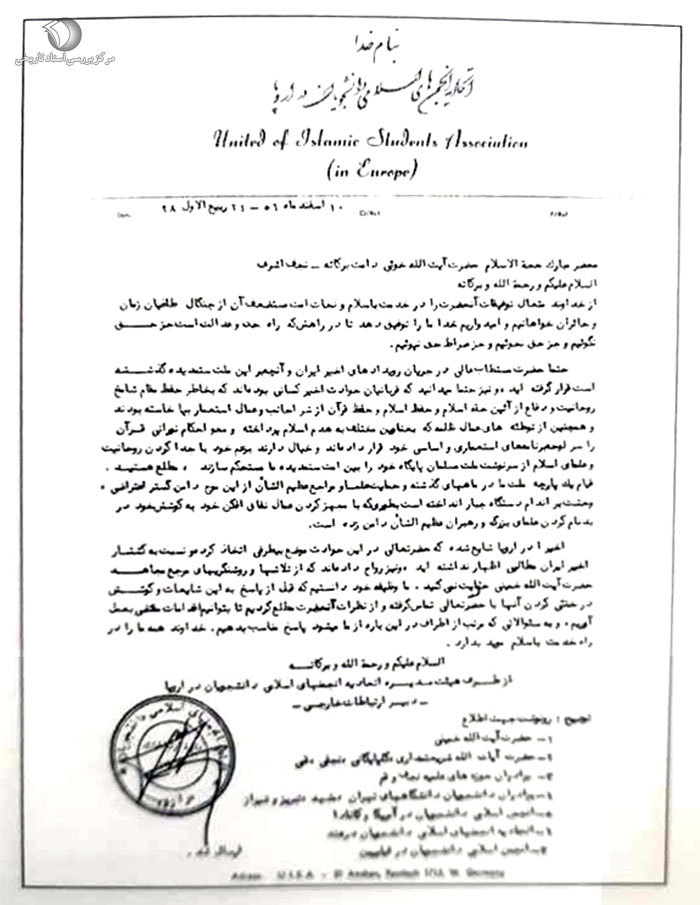 مرکز بررسی اسناد تاریخی
بنام خدا
اتحادیه انجمن های اسلامی دانشجویان در اروپا
United of Islamic Students Association
(in Europe)
۱۰ اسفند ماه ۵۶ – ۲۱ ربیع الاول ۹۸
محضر مبارک حجة الاسلام حضرت آیت الله خوئی دامت برکاته – نجف اشرف
السلام علیکم و رحمة الله و برکاته
از خداوند متعال توفیقات آنحضرت را در خدمت باسلام و نجات امت مستضعف آن از چنگال طاغیان زمان
و جائران خواهانیم و امیدواریم خدا ما را توفیق دهد تا در راهش که راه حق و عدالت است جز حق
نگوئیم و جز حق نجوئیم و جز صراط حق نپوئیم.
حتما حضرت مستطاب عالی در جریان رویدادهای اخیر ایران و آنچه بر این ملت ستمدیده گذشته
است قرار گرفته اید و نیز حتما میدانید که قربانیان حوادث اخیر کسانی بوده‌اند که بخاطر حفظ مقام شامخ
روحانیت و دفاع از آئین حقه اسلام و حفظ قرآن از شر اجانب و عمال استعمار بپا خاسته بودند
و همچنین از توطئه های عمال ظلمه که بعناوین مختلف به هدم اسلام پرداخته و محو احکام نورانی قرآن
را سر لوحه برنامه‌های استعماری و اساسی خود قرار داده‌اند و خیال دارند بزعم خود با جدا کردن روحانیت
و علمای اسلام از سرنوشت ملت مسلمان پایگاه خود را بین امت ستمدیده ما مستحکم سازند، مطلع هستید.
قیام یک پارچه ملت ما در ماههای گذشته و حمایت علما و مراجع عظیم الشأن از این موج دامن گستر اعتراضی،
وحشت بر اندام دستگاه جبار انداخته است بطوریکه با مجهز کردن عمال نفاق افکن خود به کوشش خود در
بدنام کردن علمای بزرگ و رهبران عظیم الشأن دامن زده است.
اخیرا در اروپا شایع شده که حضرتعالی در این حوادث موضع بیطرفی اتخاذ کرده و نسبت به کشتار
اخیر ایران مطالبی اظهار نداشته اید، و نیز رواج داده‌اند که از تلاشها و روشنگریهای مرجع مجاهد
حضرت آیت الله خمینی حمایت نمی کنید. ما وظیفه خود دانستیم که قبل از پاسخ به این شایعات و کوشش
در خنثی کردن آنها با حضرتعالی تماس گرفته و از نظرات آنحضرت مطلع گردیم تا بتوانیم اقدامات مقتضی بعمل
آوریم، و به سئوالاتی که مرتب از اطراف در این باره از ما میشود پاسخ مناسب بدهیم. خداوند همه ما را در
راه خدمت باسلام موید بدارد.
السلام علیکم و رحمة الله و برکاته
از طرف هیئت مدیره اتحادیه انجمنهای اسلامی دانشجویان در اروپا
– دبیر ارتباطات خارجی –
توضیح : رونوشت جهت اطلاع
۱– حضرت آیت الله خمینی
۲– حضرت آیات الله شریعتمداری، گلپایگانی، نجفی، قمی
۳– برادران حوزه های علمیه نجف و قم
۴– برادران دانشجویان دانشگاههای تهران، مشهد، تبریز و شیراز
انجمن اسلامی دانشجویان در آمریکا و کانادا
اتحادیه انجمنهای اسلامی دانشجویان در هند
انجمن اسلامی دانشجویان در فیلیپین
ارسال شد.
Adresse: U.I.S.A. – 51 Aachen, Postfach 1712, W. Germany